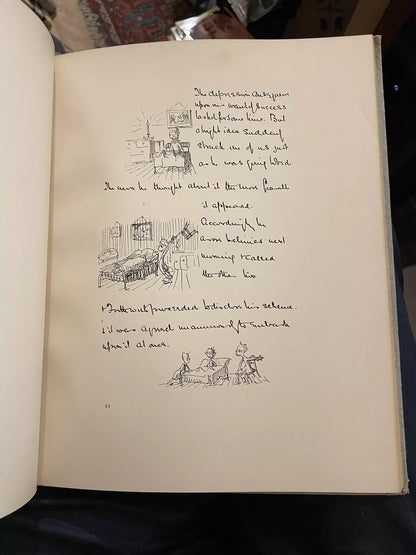 The depression consequent
upon our want of success
lasted for some time. But
a bright idea suddenly
struck one of us just
as he was going to bed
The more he thought about it the more
it appeared.
Accordingly he
arose betimes next
morning & called
the other two.
& Forthwith proceeded to disclose his scheme.
& it was agreed unanimously to embark
upon it at once.
11